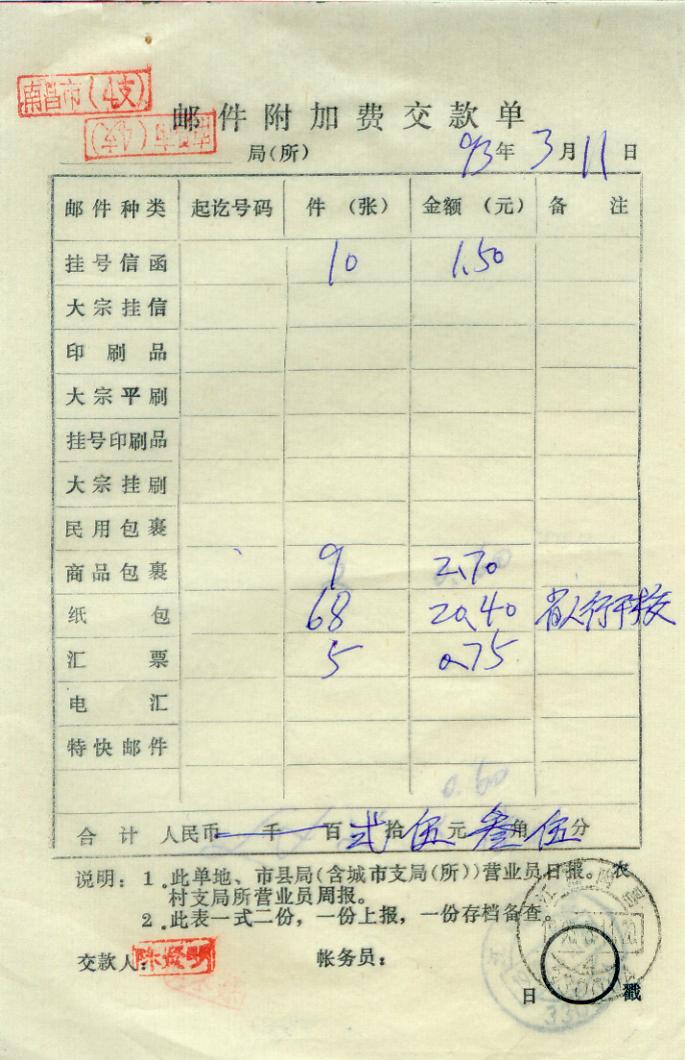 南昌市(4支)
邮件附加费交款单
局(所) 93年3月11日
邮件种类 起讫号码 件(张) 金额(元) 备注
挂号信函 10 1.50
大宗挂信
印刷品
大宗平刷
挂号印刷品
大宗挂刷
民用包裹
商品包裹 9 2.70
纸包 68 20.40 省人行干校
汇票 5 0.75
电汇
特快邮件
0.60
合计 人民币 千 百 弍拾伍元叁角伍分
说明：1.此单地、市县局(含城市支局(所))营业员日报。农
村支局所营业员周报。
2.此表一式二份，一份上报，一份存档备查。
交款人： 陈贤明 帐务员：
日 戳